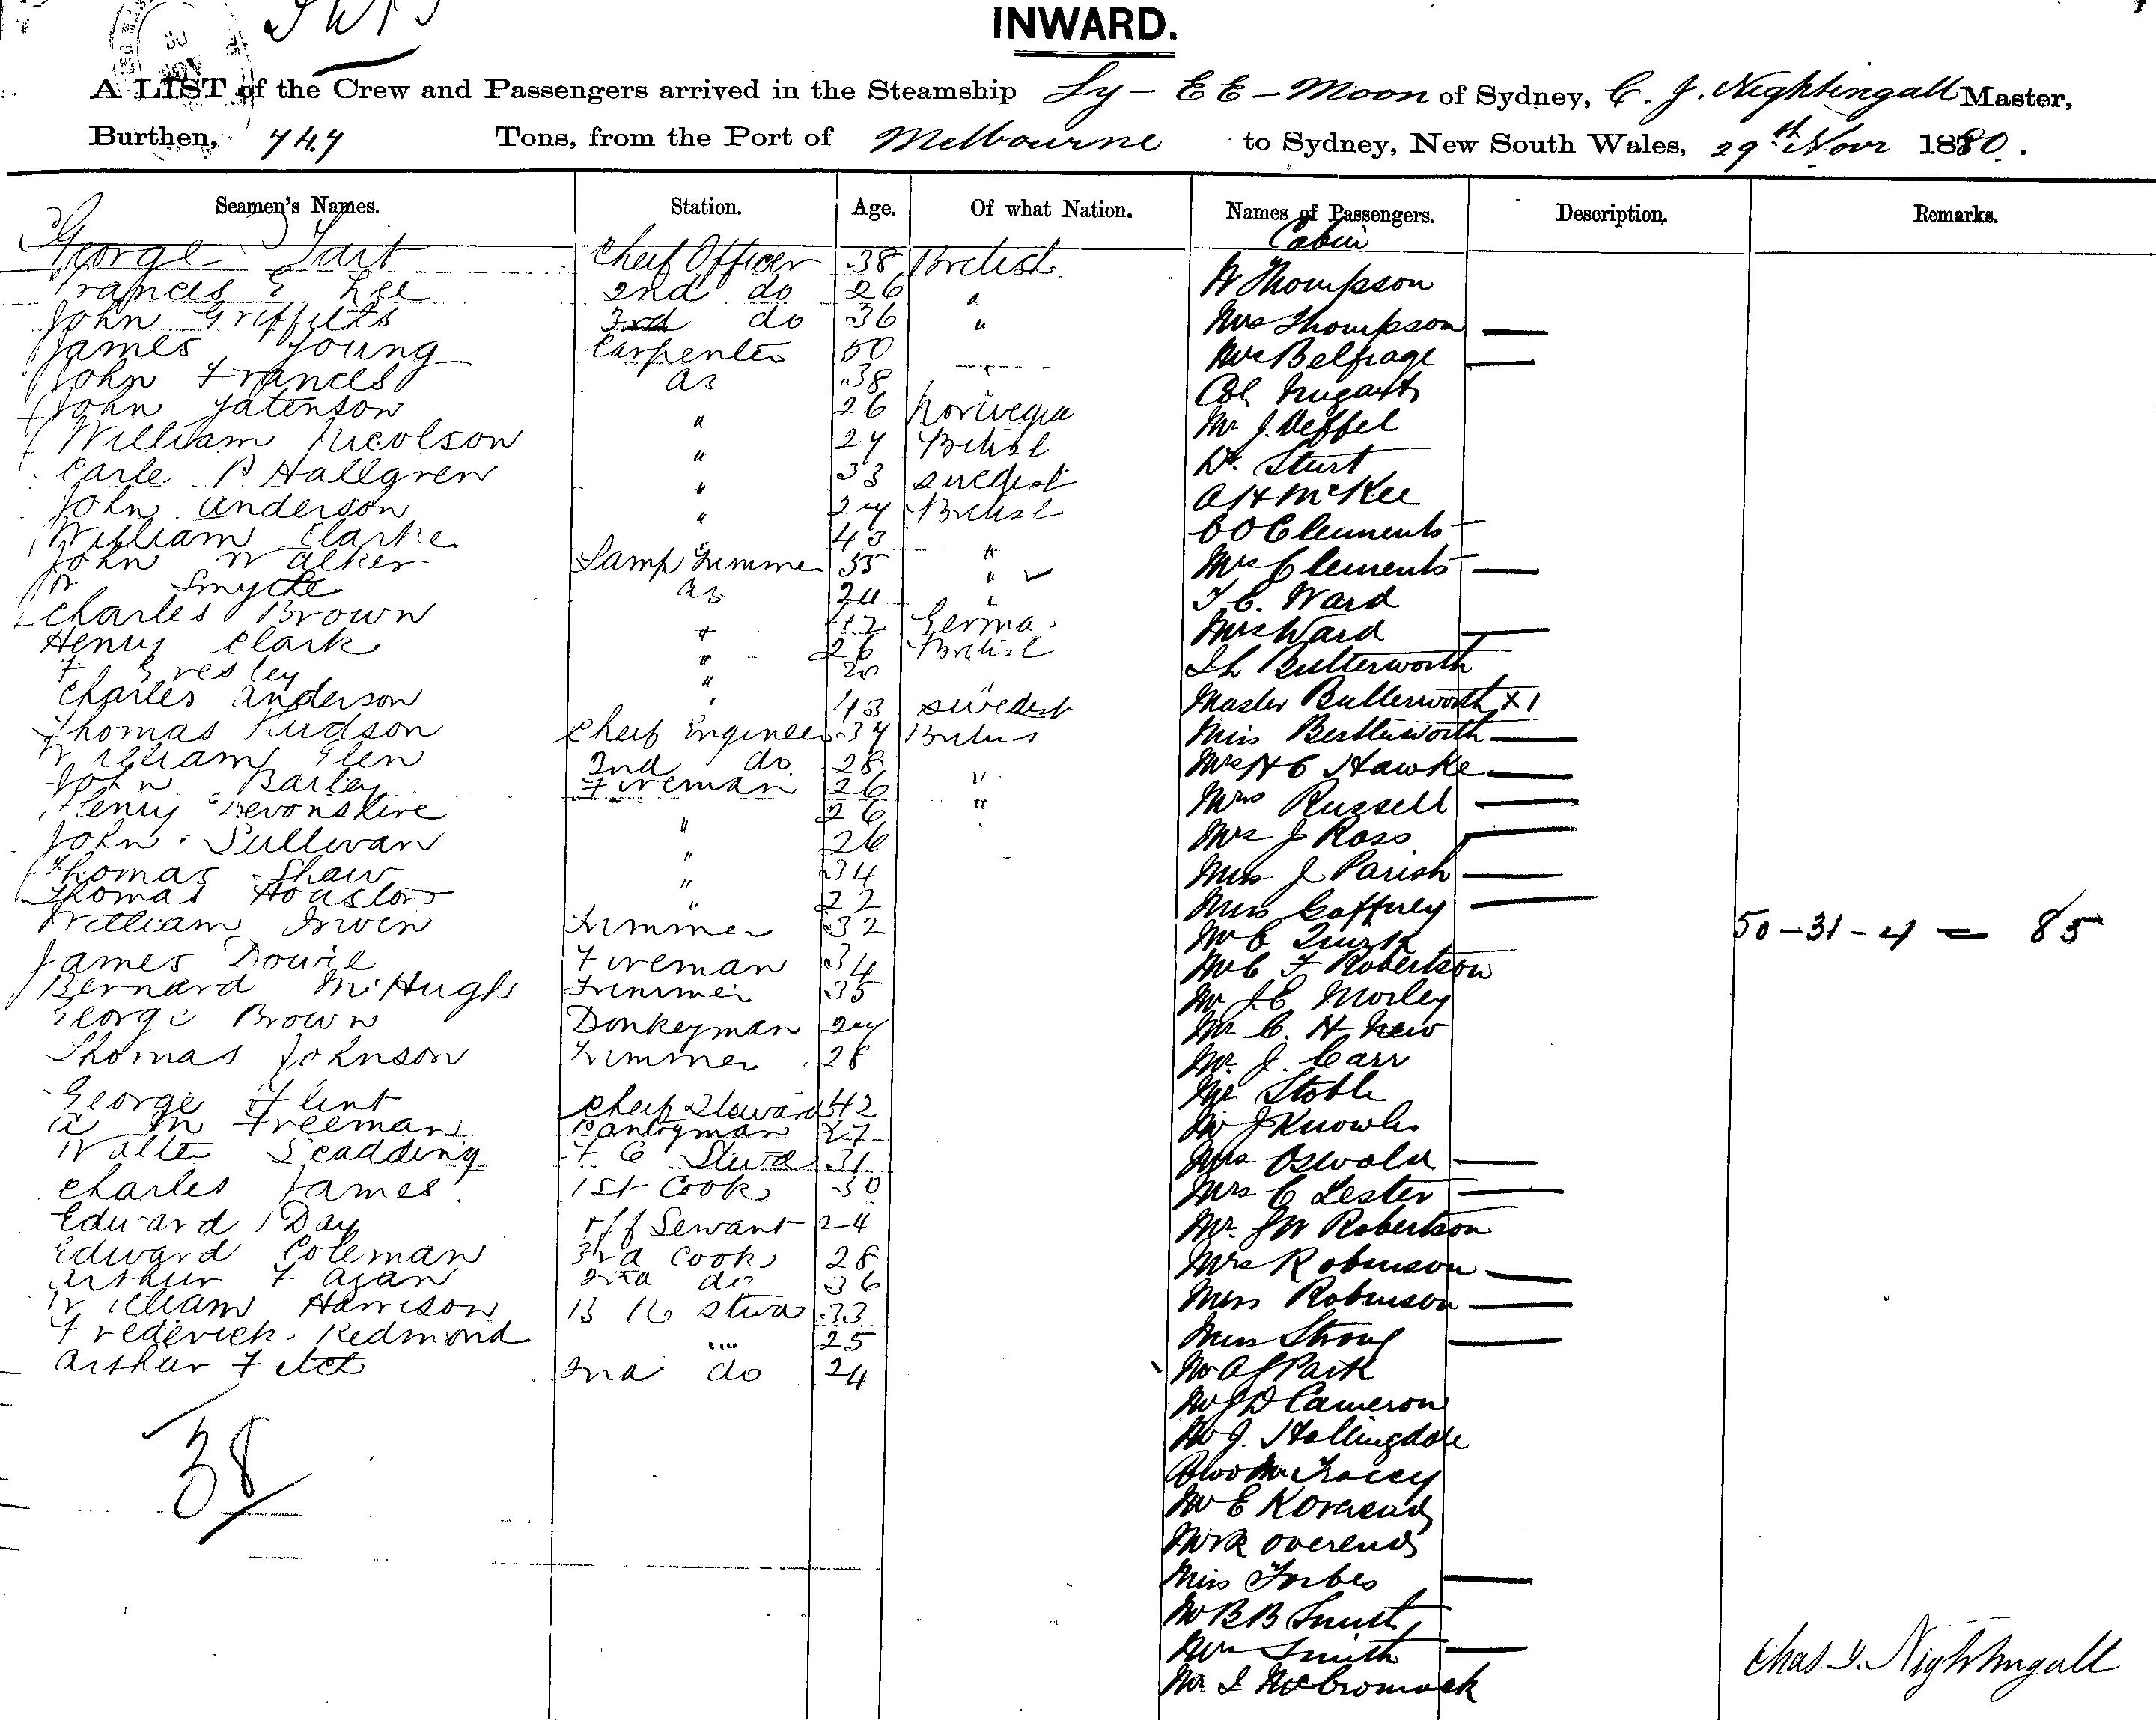 INWARD.
A LIST of the Crew and Passengers arrived in the Steamship Ly-EE-Moon of Sydney, C. J. Nightingall Master,
Burthen, 747 Tons, from the Port of Melbourne to Sydney, New South Wales, 29th Novr 1880.
Seamen's Names. Station. Age. Of what Nation. Names of Passengers. Description, Remarks.
Cabin
George Tait Cheif Officer 38 British W Thompson
Frances E Lee 2nd do 26 " Mrs Thompson —
John Griffiths 3rd do 36 " Belfrage —
James Young Carpenter 50 Col
John Frances as 38 Mr J.
John " 26 Norwegia Dr. Sturt
William Nicolson " 27 British A H McKee
Carle P Hallgren " 33 Swedish C O Clements
John Anderson " 27 British Mrs Clements —
William Clarke " 43 " T C. Ward
John Walker Lamp Trimmer 55 " Mrs Ward —
W Smythe as 24 " Butterworth
Charles Brown " 42 Germa Master Butterworth x 1
Henry Clark " 26 British Miss Butterworth —
F Gresley " 20 " Mrs H C Hawke —
Charles Anderson " 43 Swedish Mrs Russell —
Thomas Hudson Cheif Engineer 37 British Mrs J Ross —
William Glen 2nd do 28 " Miss J Parish —
John Barley Fireman 26 " Miss Gaffney —
Henry Devonshire " 26 Mr C
John Sullivan " 26 Mr C F Robertson
Thomas Shaw " 34 Mr J.E Morley
Thomas Houston " 22 Mr C. H New
William Irwin Trimmer 32 Mr. J. Carr 50-31-4 = 85
James Dowie Fireman 34 Mr Stoble
Bernard McHugh Trimmer 35 Mr J Knowles
George Brown Donkeyman 27 Mrs Oswald —
Thomas Johnson Trimmer 28 Mrs C Lester —
George Flint Cheif Steward 42 Mr. J W Robertson
A M Freeman Pantryman 27 Mrs Robinson —
Walter Scadding F C Stwd 31 Miss Robinson —
Charles James 1st Cook 30 Miss Strong —
Edward Day Servant 24 Mr A J Park
Edward Coleman 3rd Cook 28 Mr J D Cameron
Arthur F Agan 2nd do 36 Mr J. Hollingdale
William Harrison B R Stwd 33 Tracey
Frederick Redmond " 25 Mr E K
Arthur F 2nd do 24 Mr R Overend
38 Miss Forbes —
Mr B B Smith
Mrs Smith —
Mr. I McCromack
Chas J. Nightingall